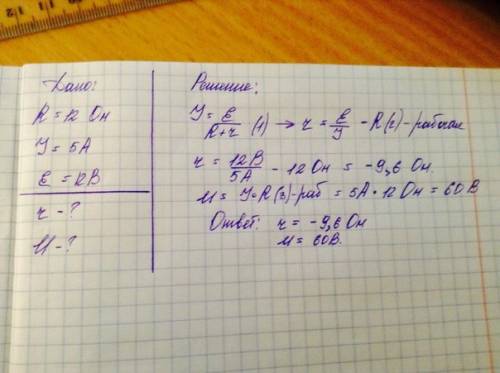 Дано:
R = 12 Ом
J = 5А
ε = 12В
r - ?
U - ?
Решение:
J = ε/(R+r) (1) → r = ε/J - R (2) - рабочая
r = 12В/5А - 12 Ом = -9,6 Ом.
U = J·R (3) - раб = 5А · 12 Ом = 60В
Ответ: r = -9,6 Ом
U = 60В.